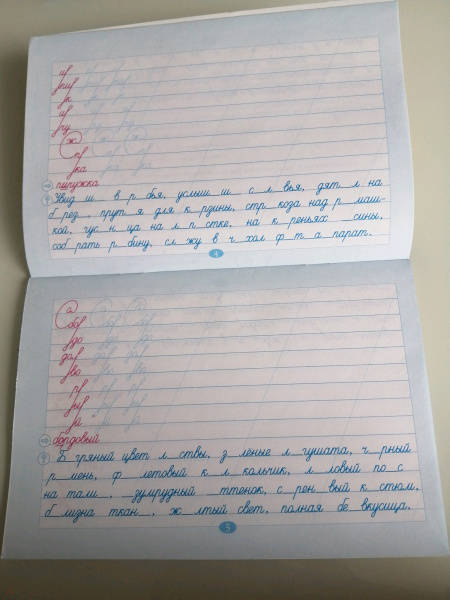 ж
пичужка
Увид ш в р бья, услыш ш с л вья, дят л на
б рез , прут я для к рзины, стр коза над р маш-
кой, гус н ца на л п стке, на к реньях сины,
соб рать р бину, сл жу в ч хол ф т а парат.
4
а
бордовый
Б гряный цвет л ствы, з леные л гушата, ч рный
р мень, ф летовый к л кольчик, л ловый по с
на тали , зумрудный ттенок, с рен вый к стюм,
б лизна ткан , ж лтый свет, полная бе вкусица.
5